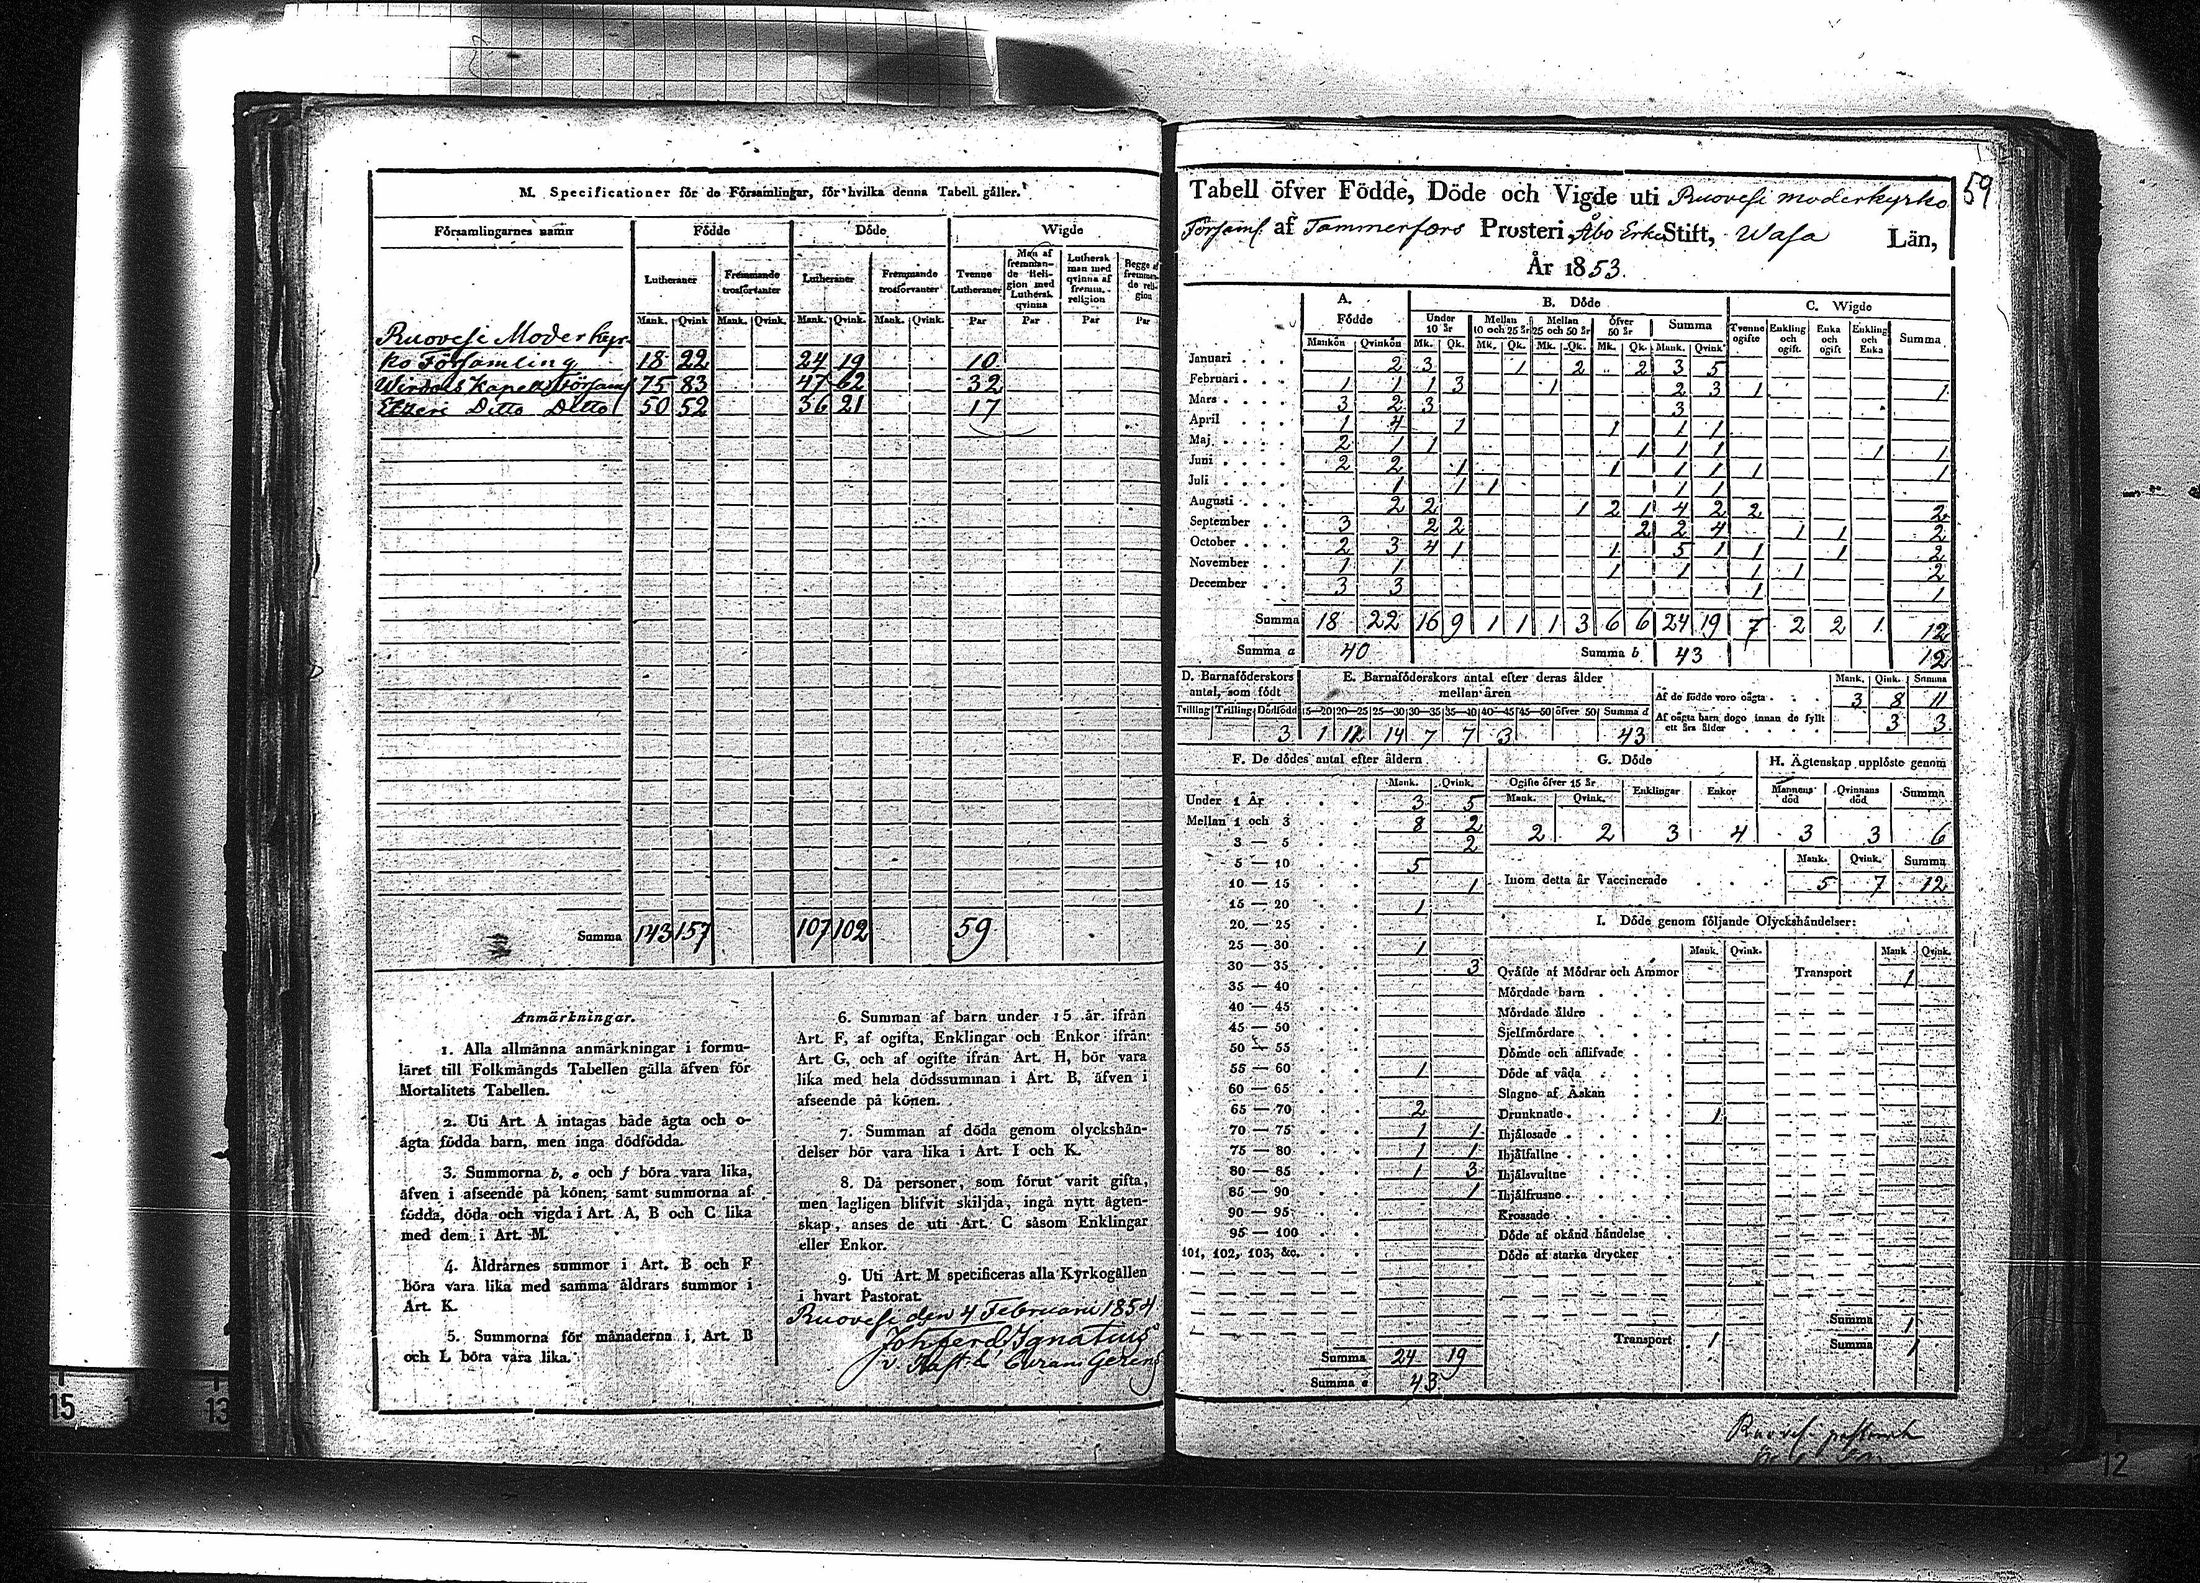 M. Specificationer för de Församlingar, för hvilka denna Tabell gäller.
Församlingarnes namn Födde Döde Wigde
Lutheraner Fremmande trosförvanter Lutheraner Fremmande trosförvanter Tvenne Lutheraner Man af fremmande Religion med Luthersk qvinna Luthersk man med qvinna af fremm. religion Begge af fremmande religion
Mank. Qvink Mank. Qvink. Mank. Qvink. Mank. Qvink. Par Par Par Par
Ruovesi Moderkyr-
ko Församling 18 22 24 19 10
Wirdois Kapell Församl 75 83 47 62 32
Etseri Ditto Ditto 50 52 36 21 17
Summa 143 157 107 102 59
Anmärkningar.
1. Alla allmänna anmärkningar i formu-
läret till Folkmängds Tabellen gälla äfven för
Mortalitets Tabellen.
2. Uti Art. A intagas både ägta och o-
ägta födda barn, men inga dödfödda.
3. Summorna b, e och f böra vara lika,
äfven i afseende på könen; samt summorna af
födda, döda och vigda i Art. A, B och C lika
med dem i Art. M.
4. Åldrarnes summor i Art. B och F
böra vara lika med samma åldrars summor i
Art. K.
5. Summorna för månaderna i Art. B
och L böra vara lika.
6. Summan af barn under 15 år ifrån
Art. F, af ogifta, Enklingar och Enkor ifrån
Art. G, och af ogifte ifrån Art. H, bör vara
lika med hela dödssumman i Art. B, äfven i
afseende på könen.
7. Summan af döda genom olyckshän-
delser bör vara lika i Art. I och K.
8. Då personer, som förut varit gifta,
men lagligen blifvit skiljda, ingå nytt ägten-
skap, anses de uti Art. C såsom Enklingar
eller Enkor.
9. Uti Art. M specificeras alla Kyrkogällen
i hvart Pastorat.
Ruovesi den 4 Februarii 1854
Joh ferd Ignatius
v. Past. &
59
Tabell öfver Födde, Döde och Vigde uti Ruovesi moderkyrko
Församl. af Tammerfors Prosteri, Åbo Erke Stift, Wasa Län,
År 1853.
A. Födde B. Döde C. Wigde
Under 10 år Mellan 10 och 25 år Mellan 25 och 50 år öfver 50 år Summa Tvenne ogifte Enkling och ogift. Enka och ogift Enkling och Enka Summa
Mankön Qvinkön Mk. Qk. Mk. Qk. Mk. Qk. Mk. Qk. Mank. Qvink
Januari 2 3 1 2 2 3 5
Februari 1 1 1 3 1 2 3 1 1
Mars 3 2 3 3
April 1 4 1 1 1 1
Maj 2 1 1 1 1 1 1 1
Juni 2 2 1 1 1 1 1 1
Juli 1 1 1 1 1
Augusti 2 2 1 2 1 4 2 2 2
September 3 2 2 2 2 4 1 1 2
October 2 3 4 1 1 5 1 1 1 2
November 1 1 1 1 1 1 2
December 3 3 1 1
Summa 18 22 16 9 1 1 1 3 6 6 24 19 7 2 2 1 12
Summa a 40 Summa b 43 12
D. Barnaföderskors antal, som födt
Tvilling Trilling Dödfödd
3
E. Barnaföderskors antal efter deras ålder mellan åren
15—20 20—25 25—30 30—35 35—40 40—45 45—50 öfver 50 Summa d
1 11 14 7 7 3 43
Mank. Qink. Summa
Af de födde voro oägta 3 8 11
Af oägta barn dogo innan de fyllt ett års ålder 3 3
F. De dödes antal efter åldern
Mank. Qvink.
Under 1 År 3 5
Mellan 1 och 3 8 2
3 — 5 2
5 — 10 5
10 — 15 1
15 — 20 1
20 — 25
25 — 30 1
30 — 35 3
35 — 40
40 — 45
45 — 50
50 — 55
55 — 60 1
60 — 65
65 — 70 2
70 — 75 1 1
75 — 80 1 1
80 — 85 1 3
85 — 90 1
90 — 95
95 — 100
101, 102, 103, &c.
Summa 24 19
Summa e 43
G. Döde
Ogifte öfver 15 år Enklingar Enkor
Mank. Qvink.
2 2 3 4
H. Ägtenskap upplöste genom
Mannens död Qvinnans död Summa
3 3 6
Mank. Qvink. Summa
Inom detta år Vaccinerade 5 7 12
I. Döde genom följande Olyckshändelser:
Mank. Qvink. Mank Qvink.
Qväfde af Mödrar och Ammor Transport 1
Mördade barn
Mördade äldre
Sjelfmördare
Dömde och aflifvade
Döde af våda
Slagne af Åskan
Drunknade 1
Ihjälosade
Ihjälfallne
Ihjälsvultne
Ihjälfrusne
Krossade
Döde af okänd händelse
Döde af starka drycker
Summa 1
Transport 1 Summa 1
Ruovesi pastorat
15 13 12